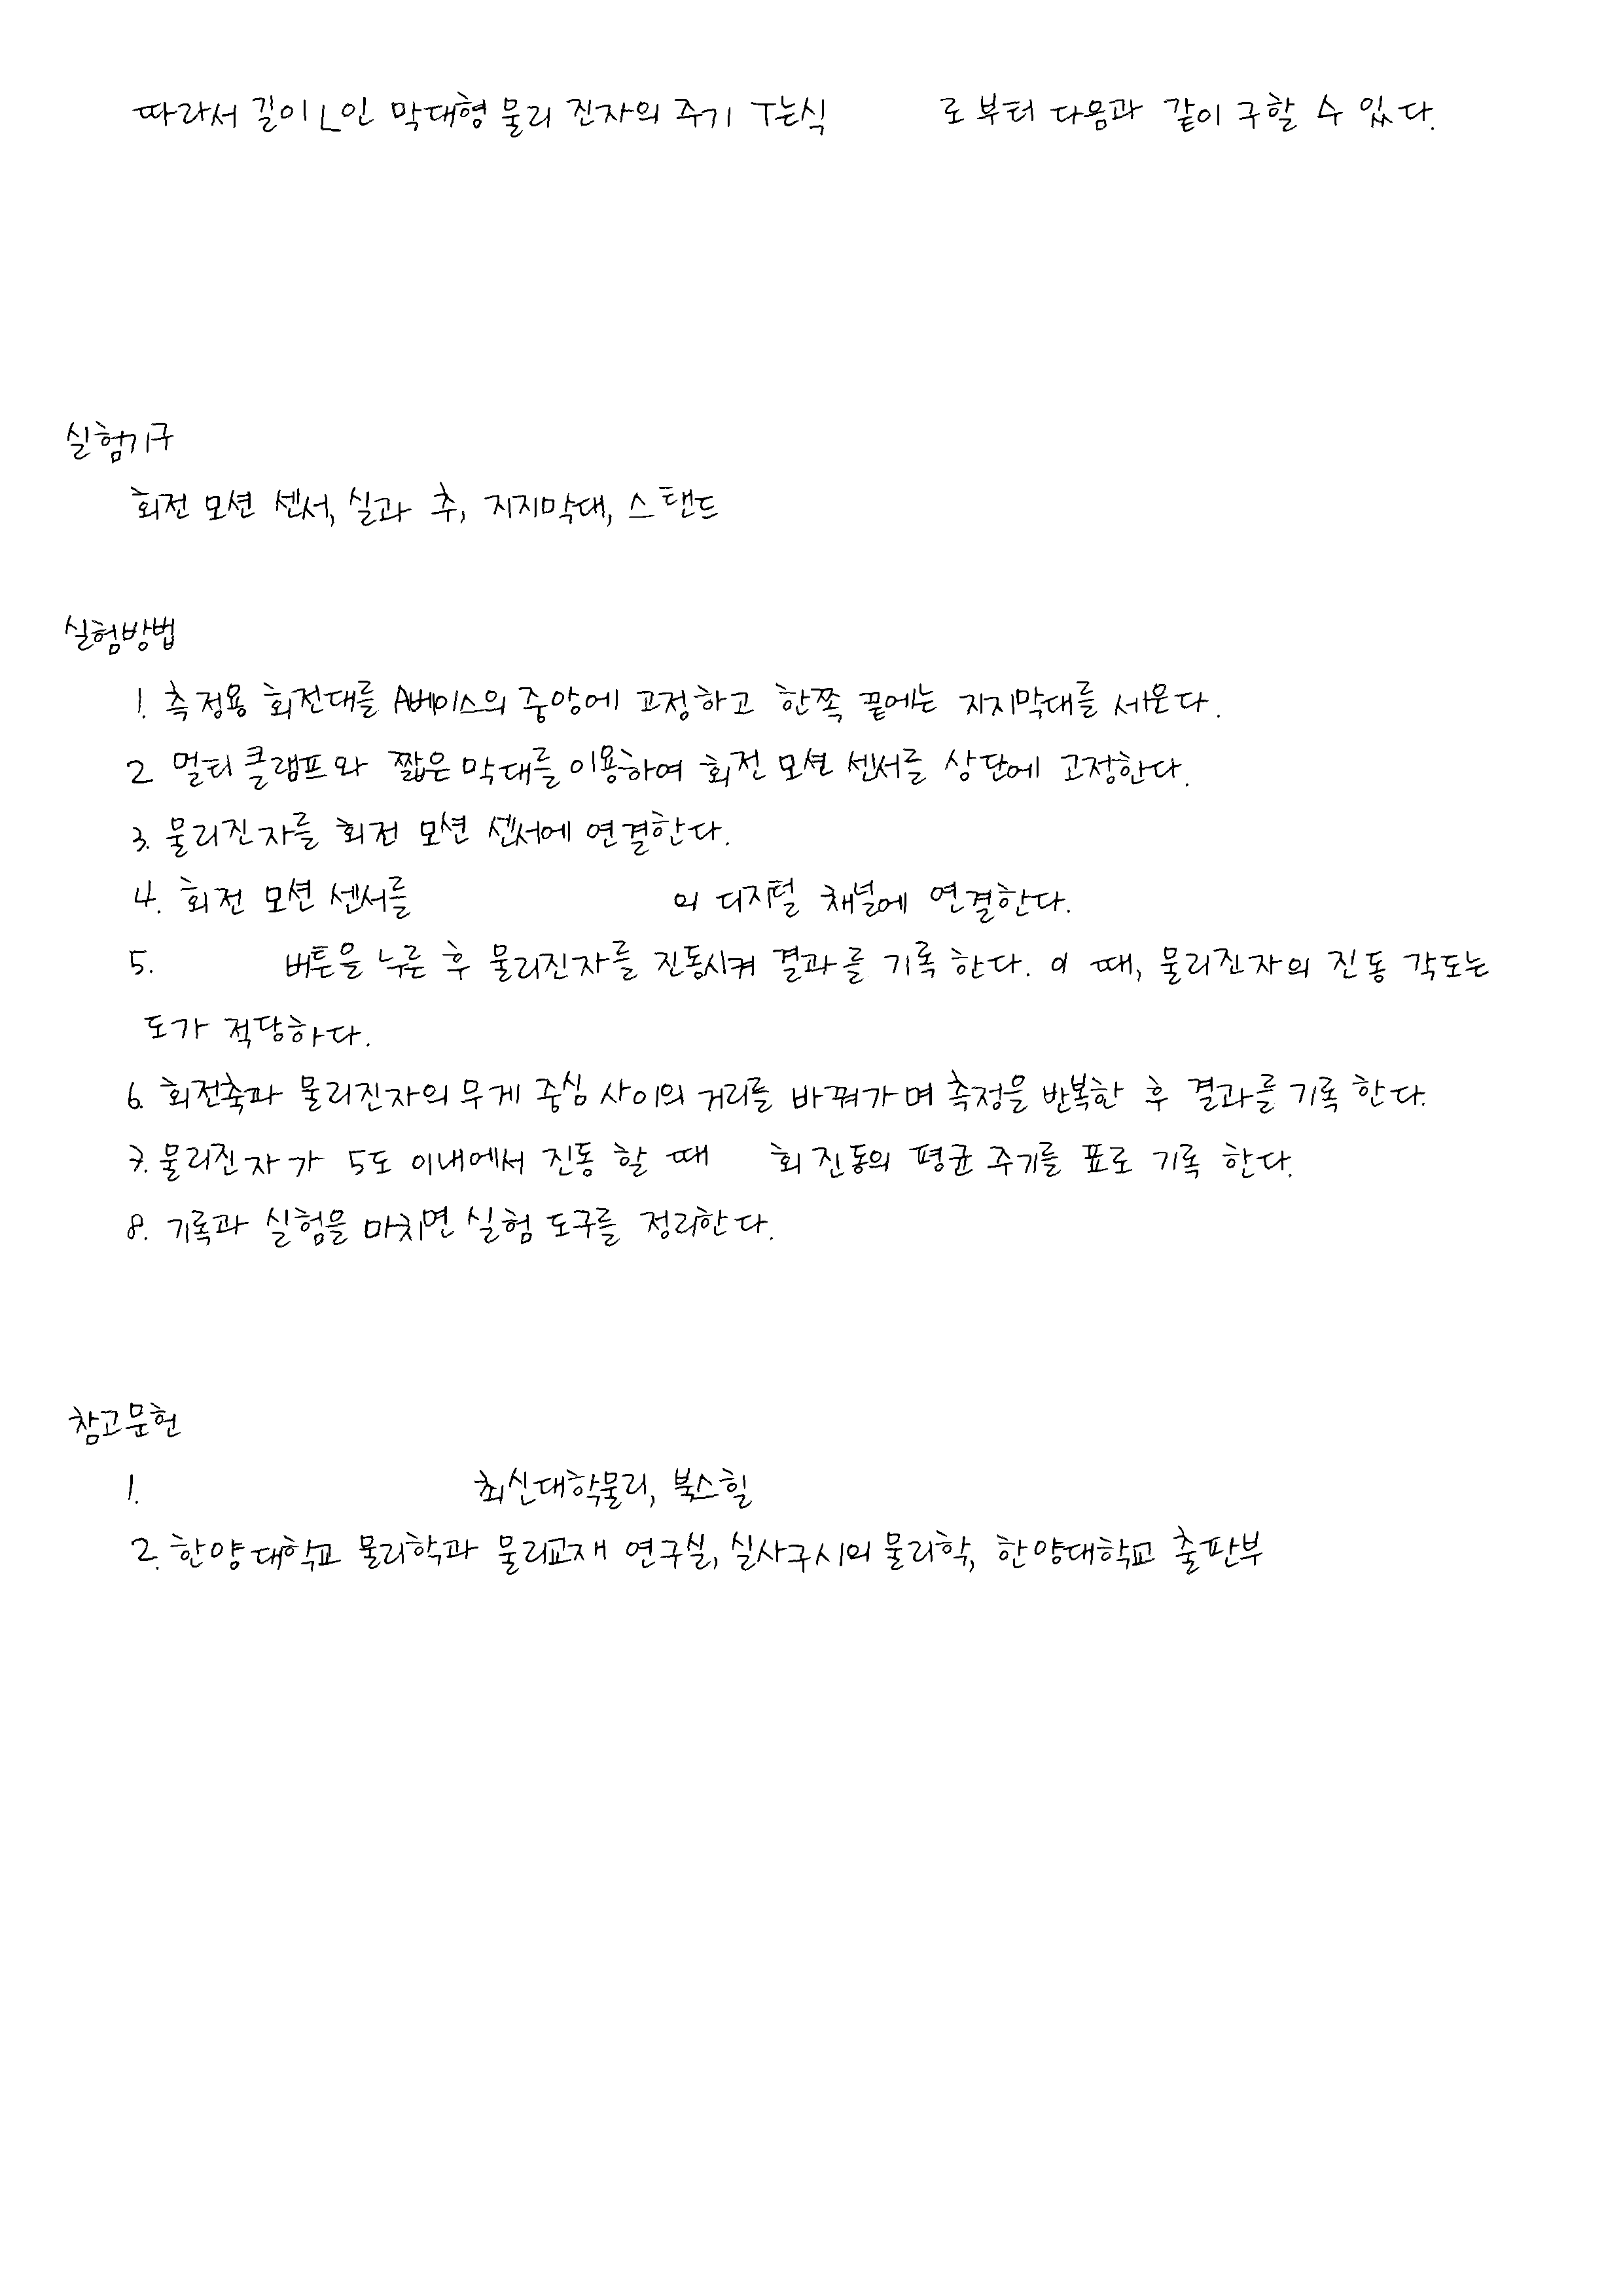 따라서 길이 L인 막대형 물리 진자의 주기 T는 식 로부터 다음과 같이 구할 수 있다.
실험기구
회전 모션 센서, 실과 추, 지지막대, 스탠드
실험방법
1. 측정용 회전대를 A베이스의 중앙에 고정하고 한쪽 끝에는 지지막대를 세운다.
2. 멀티 클램프와 짧은 막대를 이용하여 회전 모션 센서를 상단에 고정한다.
3. 물리진자를 회전 모션 센서에 연결한다.
4. 회전 모션 센서를 의 디지털 채널에 연결한다.
5. 버튼을 누른 후 물리진자를 진동시켜 결과를 기록한다. 이 때, 물리진자의 진동 각도는
도가 적당하다.
6. 회전축과 물리진자의 무게 중심 사이의 거리를 바꿔가며 측정을 반복한 후 결과를 기록 한다.
7. 물리진자가 5도 이내에서 진동 할 때 회 진동의 평균 주기를 표로 기록 한다.
8. 기록과 실험을 마치면 실험 도구를 정리한다.
참고문헌
1. 최신대학물리, 북스힐
2. 한양대학교 물리학과 물리교재 연구실, 실사구시의 물리학, 한양대학교 출판부